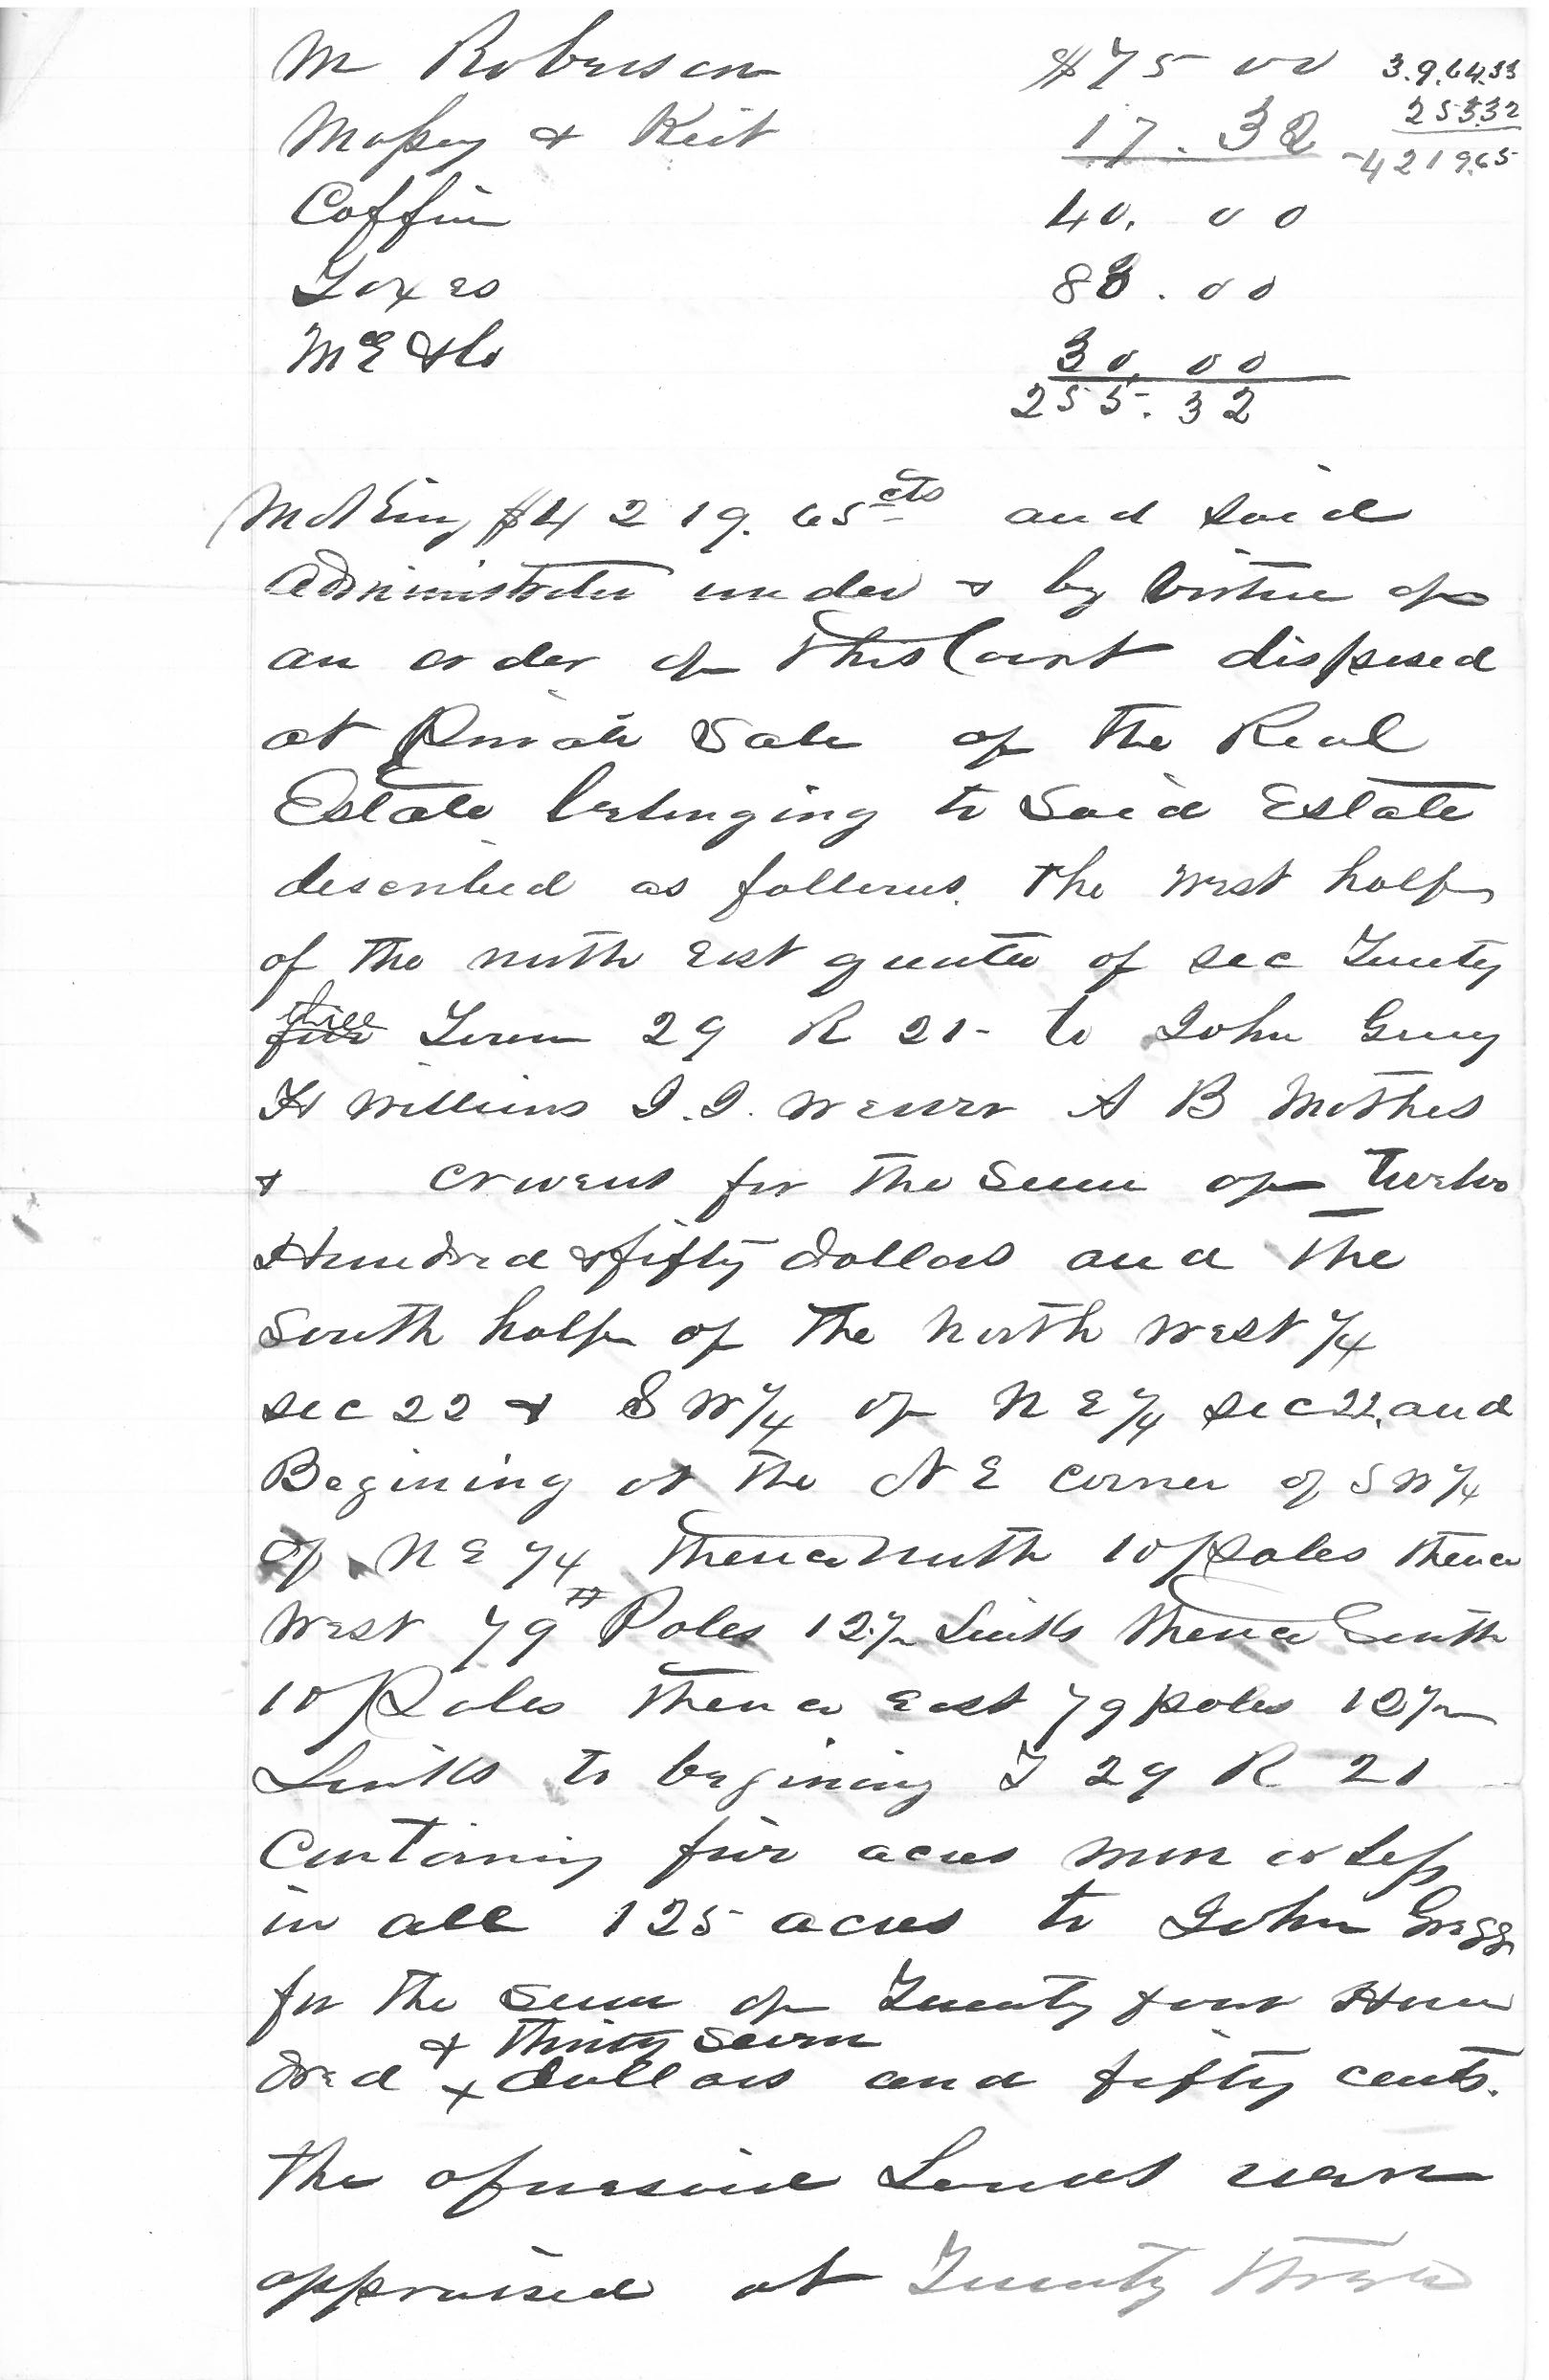 M Roberson $75 00 3.9.64.33
Massey & Keit 17.32 253.32
4219.65
Coffin 40.00
Taxes 88.00
McE & Co 30.00
255.32
Making $4219.65 cts and said
Administrator under & by virtue of
an order of this Court disposed
at Private Sale of the Real
Estate belonging to Said Estate
described as follows. The west half
of the north East quarter of sec Twenty
three Town 29 R 21 - to John
Williams J.J. Weaver A B Mathes
& Cravens for the Sum of Twelve
Hundred & fifty dollars and the
South half of the North West 1/4
Sec 22 & S W 1/4 of N E 1/4 Sec 22, and
Begining at the N E Corner of S W 1/4
of N E 1/4 Thence North 10 Poles thence
West 79 Poles 12 1/2 Links Thence South
10 Poles Thence East 79 poles 12 1/2
Links to begining T 29 R 21
Containing five acres more or Less
in all 125 acres to John Gregg
for the Sum of Twenty four Hun
& Thirty Seven
dred x dollars and fifty cents.
The aforesaid Lands were
appraised at Twenty three